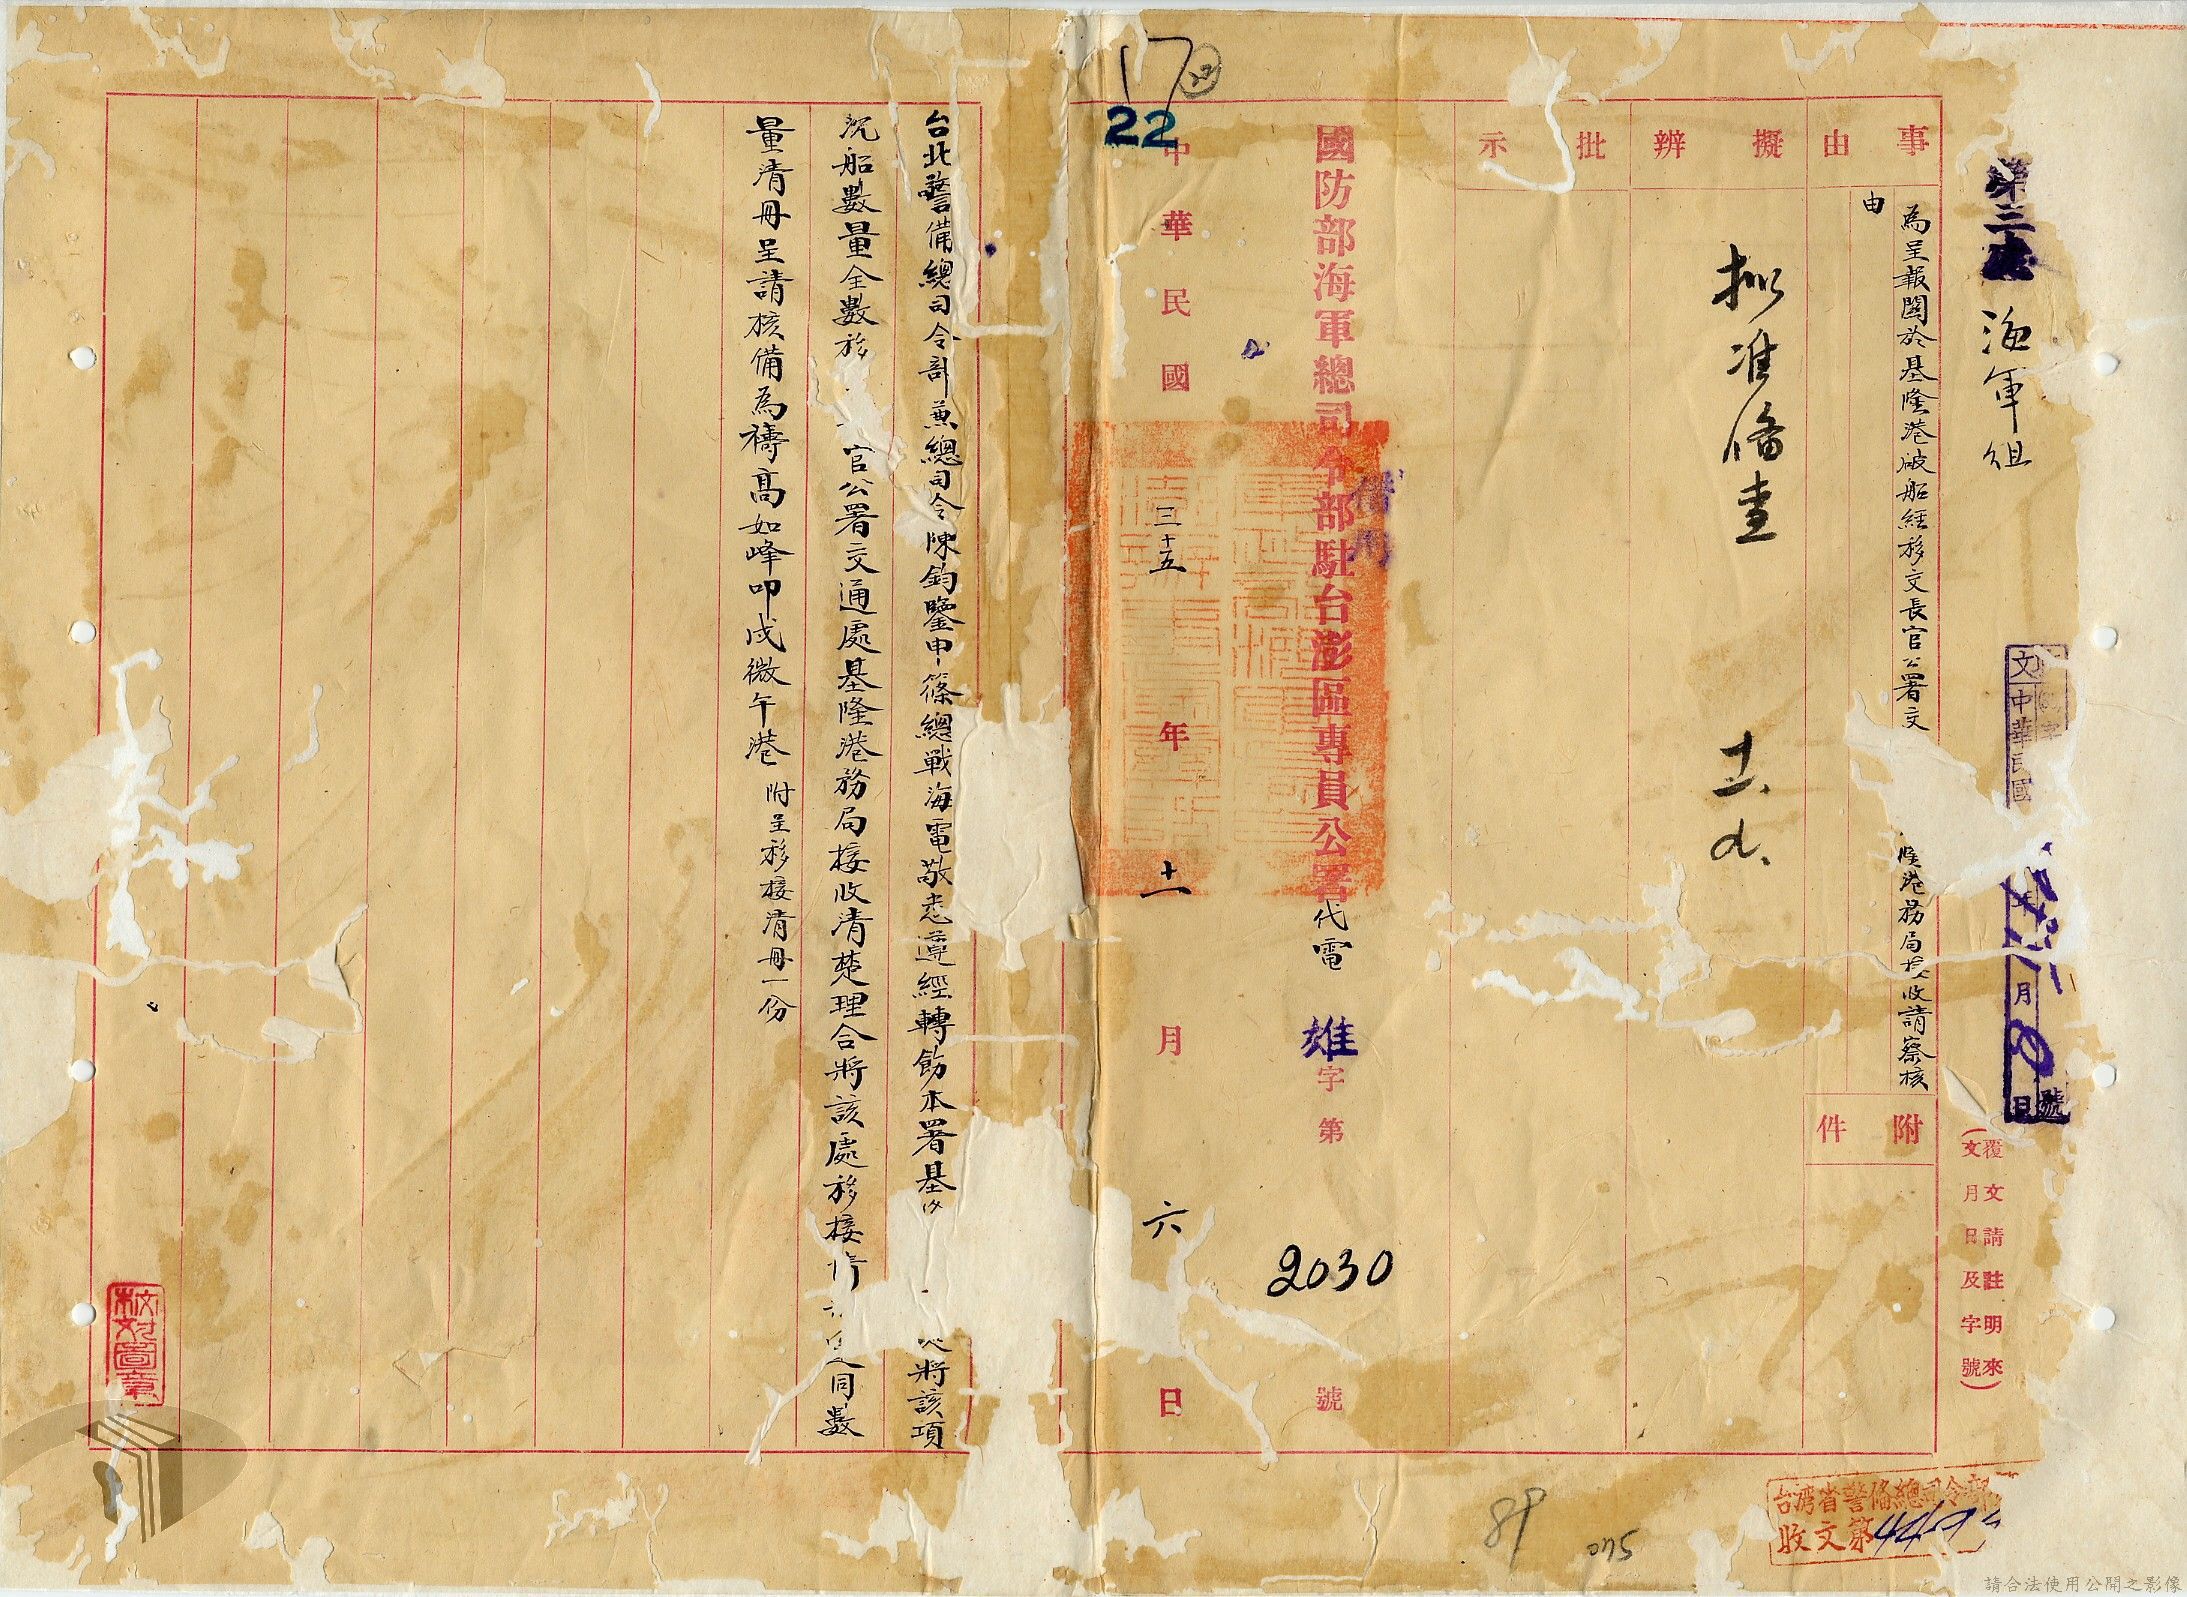 第三處
海軍組
事由
為呈報關於基隆港破船經移交長官公署交
隆港務局接收請察核
由
附件
擬辦
擬准備查
十一.
批示
(覆文請註明來
文月日及字號)
中華民國
月
日
號
國防部海軍總司令部駐台澎區專員公署代電
借用
雄字第2030號
中華民國三十五年十一月六日
17
22
台北警備總司令部兼總司令陳鈞鑒申篠總戰海電敬悉遵經轉飭本署基
將該項
沉船數量全數移
官公署交通處基隆港務局接收清楚理合將該處移接
同數
量清冊呈請核備為禱高如峰叩戌微午港
附呈移接清冊一份
校對
圖章
台灣省警備總司令部
收文第
89
045
請合法使用公開之影像